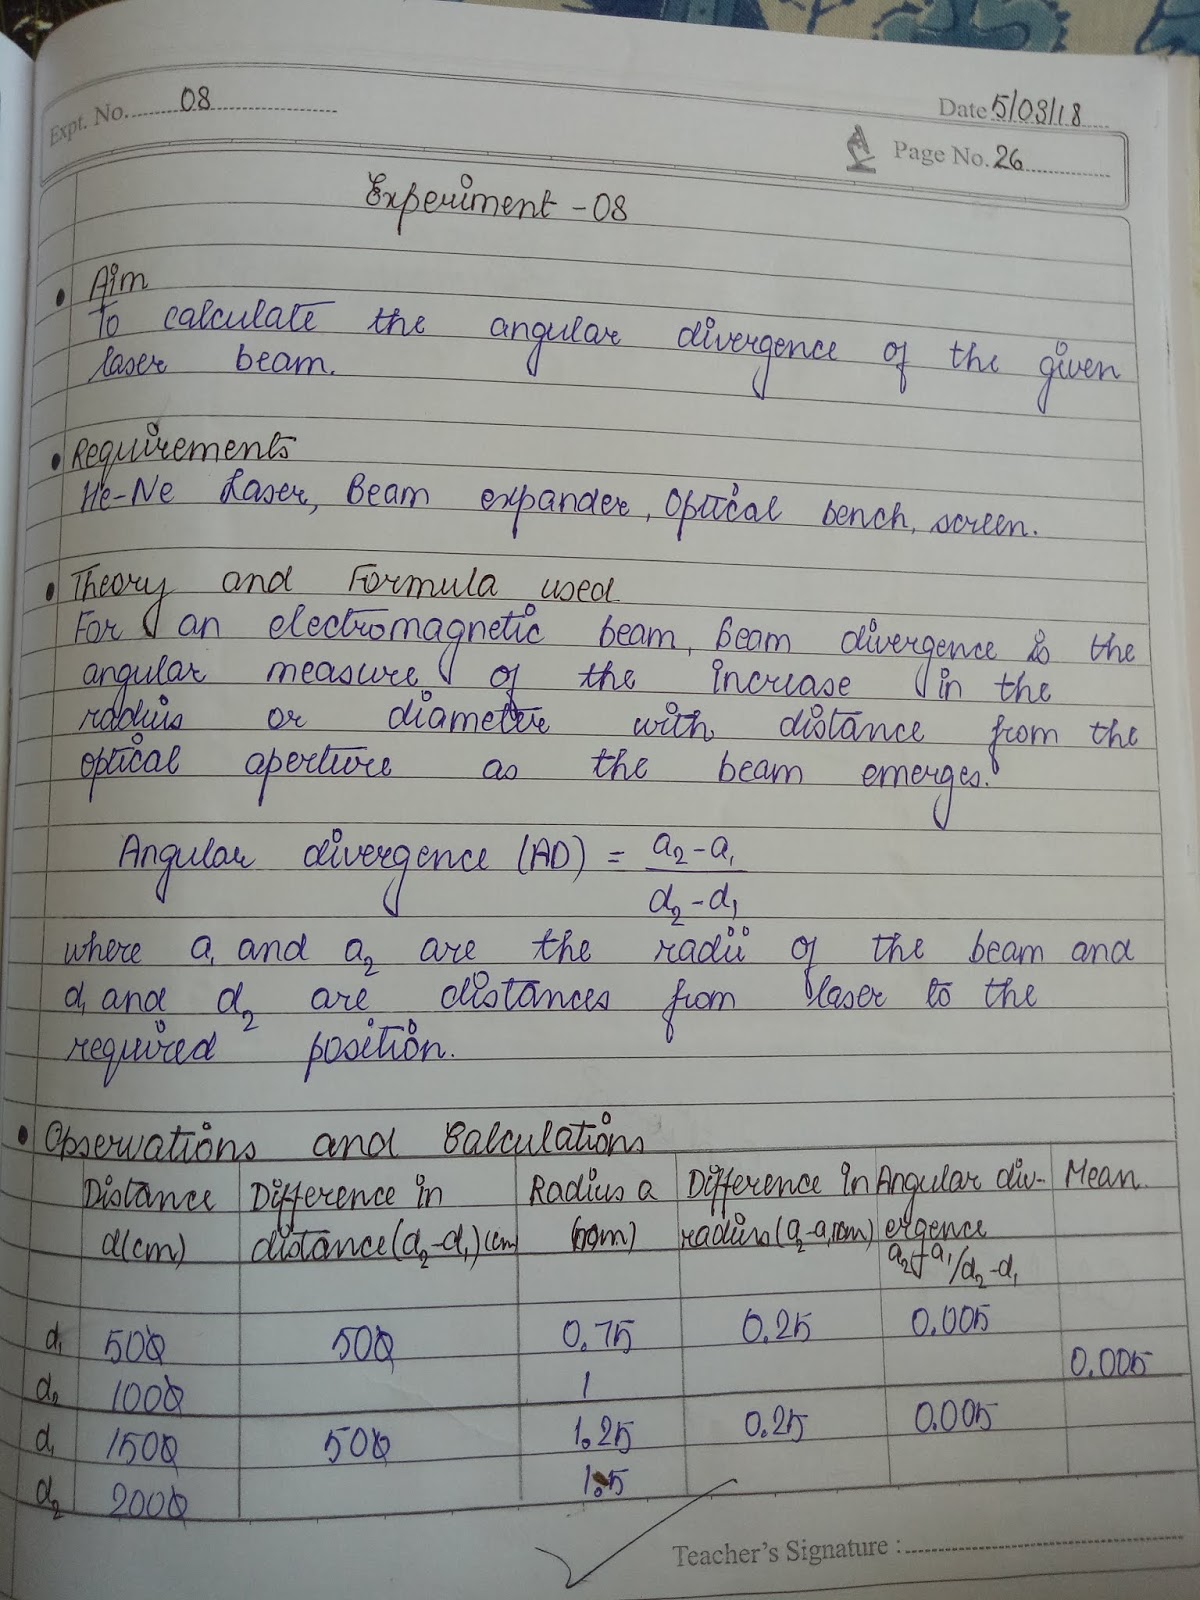 Expt. No. 08
Date 5/03/18
Page No. 26
Experiment - 08
• Aim
To calculate the angular divergence of the given
laser beam.
• Requirements
He-Ne Laser, Beam expander, Optical bench, screen.
• Theory and Formula used
For an electromagnetic beam, Beam divergence is the
angular measure of the increase in the
radius or diameter with distance from the
optical aperture as the beam emerges.
Angular divergence (AD) = a₂-a₁
d₂-d₁
where a₁ and a₂ are the radii of the beam and
d₁ and d₂ are distances from laser to the
required position.
• Observations and Calculations
Distance Difference in Radius a Difference in Angular div- Mean.
d(cm) distance(d₂-d₁)(cm) radius(a₂-a₁)(cm) ergence
a₂-a₁/d₂-d₁
d₁ 500 500 0.75 0.25 0.005
0.005
d₂ 1000 1
d₁ 1500 500 1.25 0.25 0.005
d₂ 2000 1.5
Teacher's Signature :